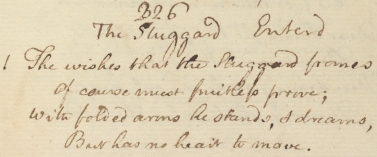 326
The Sluggard Enterd
1 The wishes that the Sluggard frames
of course must fruitless prove;
with folded arms he stands, & dreams,
But has no heart to move.